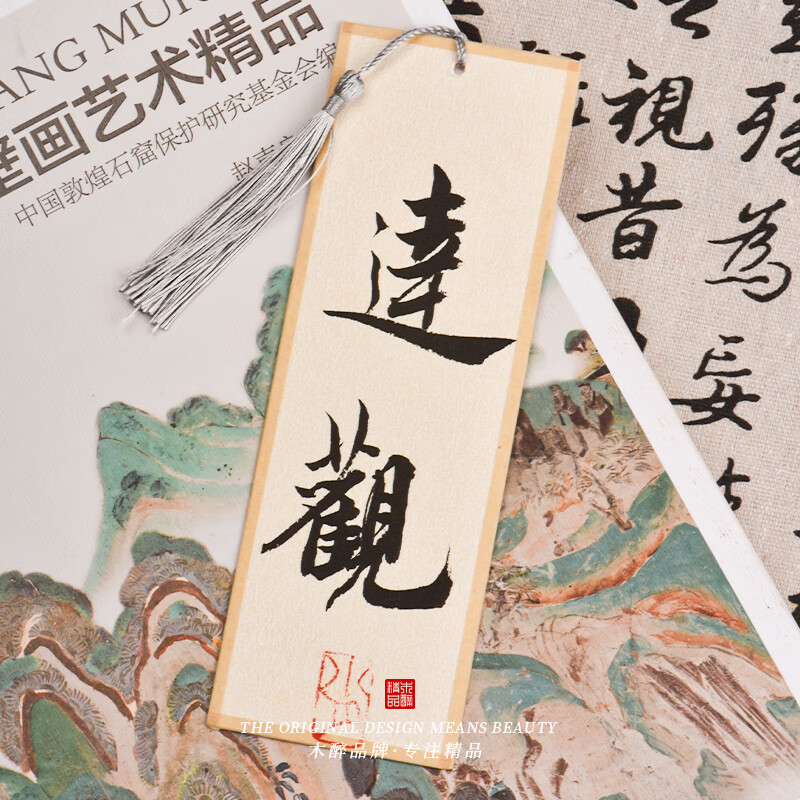 ANG MUR
壁画艺术精品
中国敦煌石窟保护研究基金会编
達
觀
視
昔
為
妄
木醉
精品
THE ORIGINAL DESIGN MEANS BEAUTY
木醉品牌·专注精品